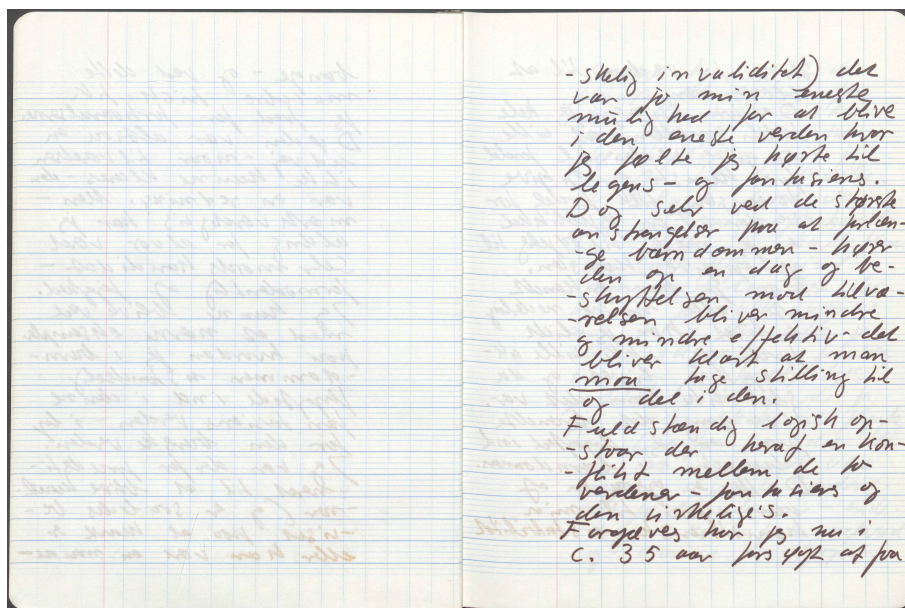 -skelig invaliditet) det
var jo min eneste
mulighed for at blive
i den eneste verden hvor
jeg følte jeg hørte til
legens - og fantasiens.
Dog selv ved de største
anstrengelser paa at forlæn-
-ge barndommen - hører
den op en dag og be-
-skyttelsen mod tilvæ-
-relsen bliver mindre
og mindre effektiv det
bliver klart at man
maa tage stilling til
og del i den.
Fuldstændig logisk op-
-staar der heraf en kon-
-flikt mellem de to
verdener - fantasiens og
den virkelige's.
Forgæves har jeg nu i
c. 35 aar forsøgt at faa